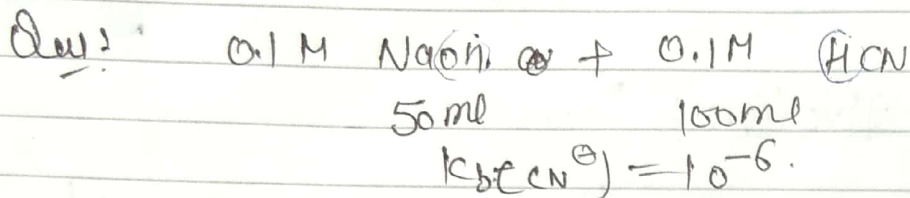 Que: 0.1 M NaOH + 0.1M HCN
50 ml 100 ml
Kb(CN⊖) = 10⁻⁶.